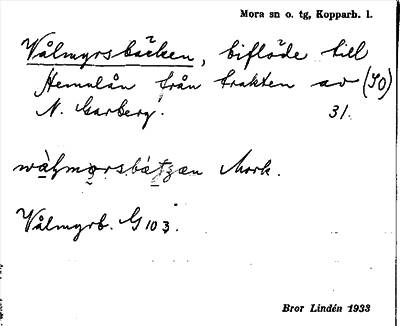 Mora sn o. tg, Kopparb. l.
Vålmyrsbäcken, biflöde till
Hemulån från trakten av (SO)
N. Garberg. 31.
wålmorsbätzan Mork.
Vålmyrb. G 103.
Bror Lindén 1933